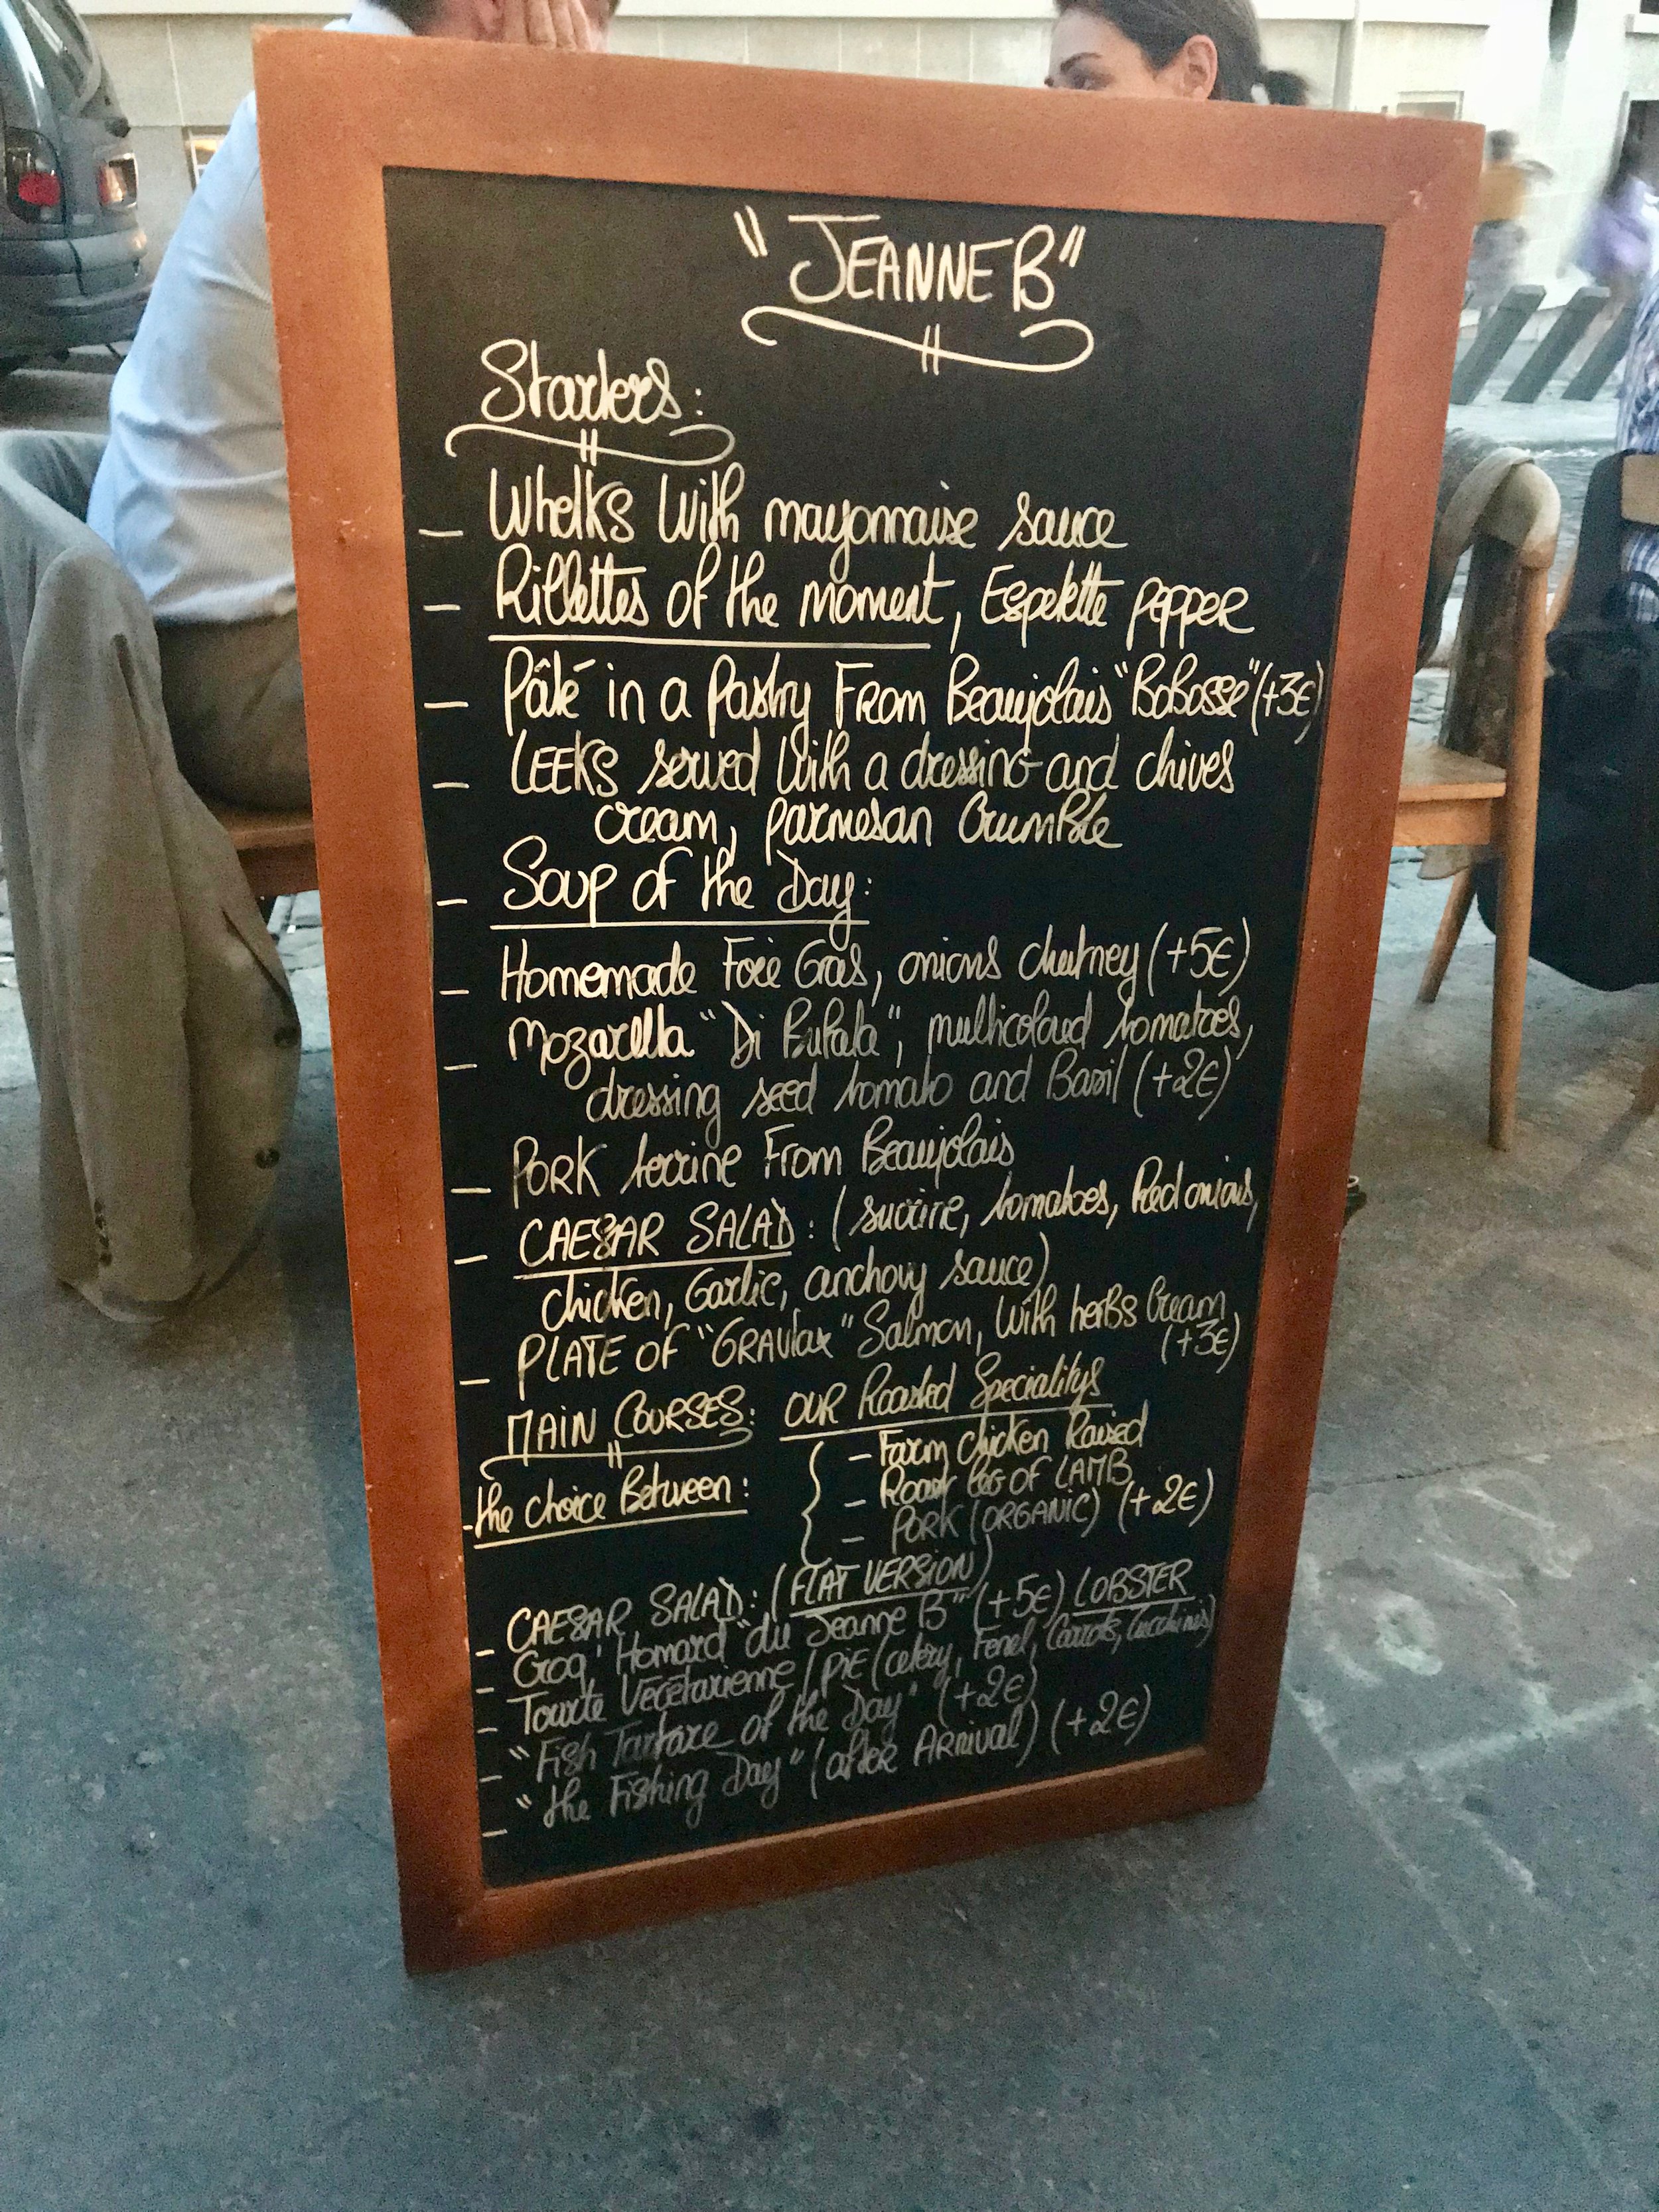 "JEANNE B"
Starters:
- Whelks With mayonnaise sauce
- Rillettes of the moment, Espelette pepper
- Pâté in a Pastry From Beaujolais "BoBosse" (+3€)
- LEEKS served With a dressing and chives
cream, parmesan Crumble
- Soup of the Day:
- Homemade Foie Gras, onions chutney (+5€)
- Mozarella "Di Bufala", multicoloud tomatoes,
dressing seed tomato and Basil (+2€)
- PORK terrine From Beaujolais
- CAESAR SALAD: (sucrine, tomatoes, Red onions,
chicken, Garlic, anchovy sauce)
- PLATE OF "GRAVlax" Salmon, With herbs Cream
(+3€)
MAIN COURSES: OUR Roasted Specialitys
- the choice Between:
- Farm chicken Raised
- Roast leg OF LAMB
- PORK (ORGANIC) (+2€)
- CAESAR SALAD: (FLAT VERSION)
- Croq' Homard "du Jeanne B" (+5€) LOBSTER
- Tourte Végétarienne / PiE (celery, Fenel, Carrots, zucchinis)
- "Fish Tartare of the Day" (+2€)
- "the Fishing Day" (after ARRIVAL) (+2€)